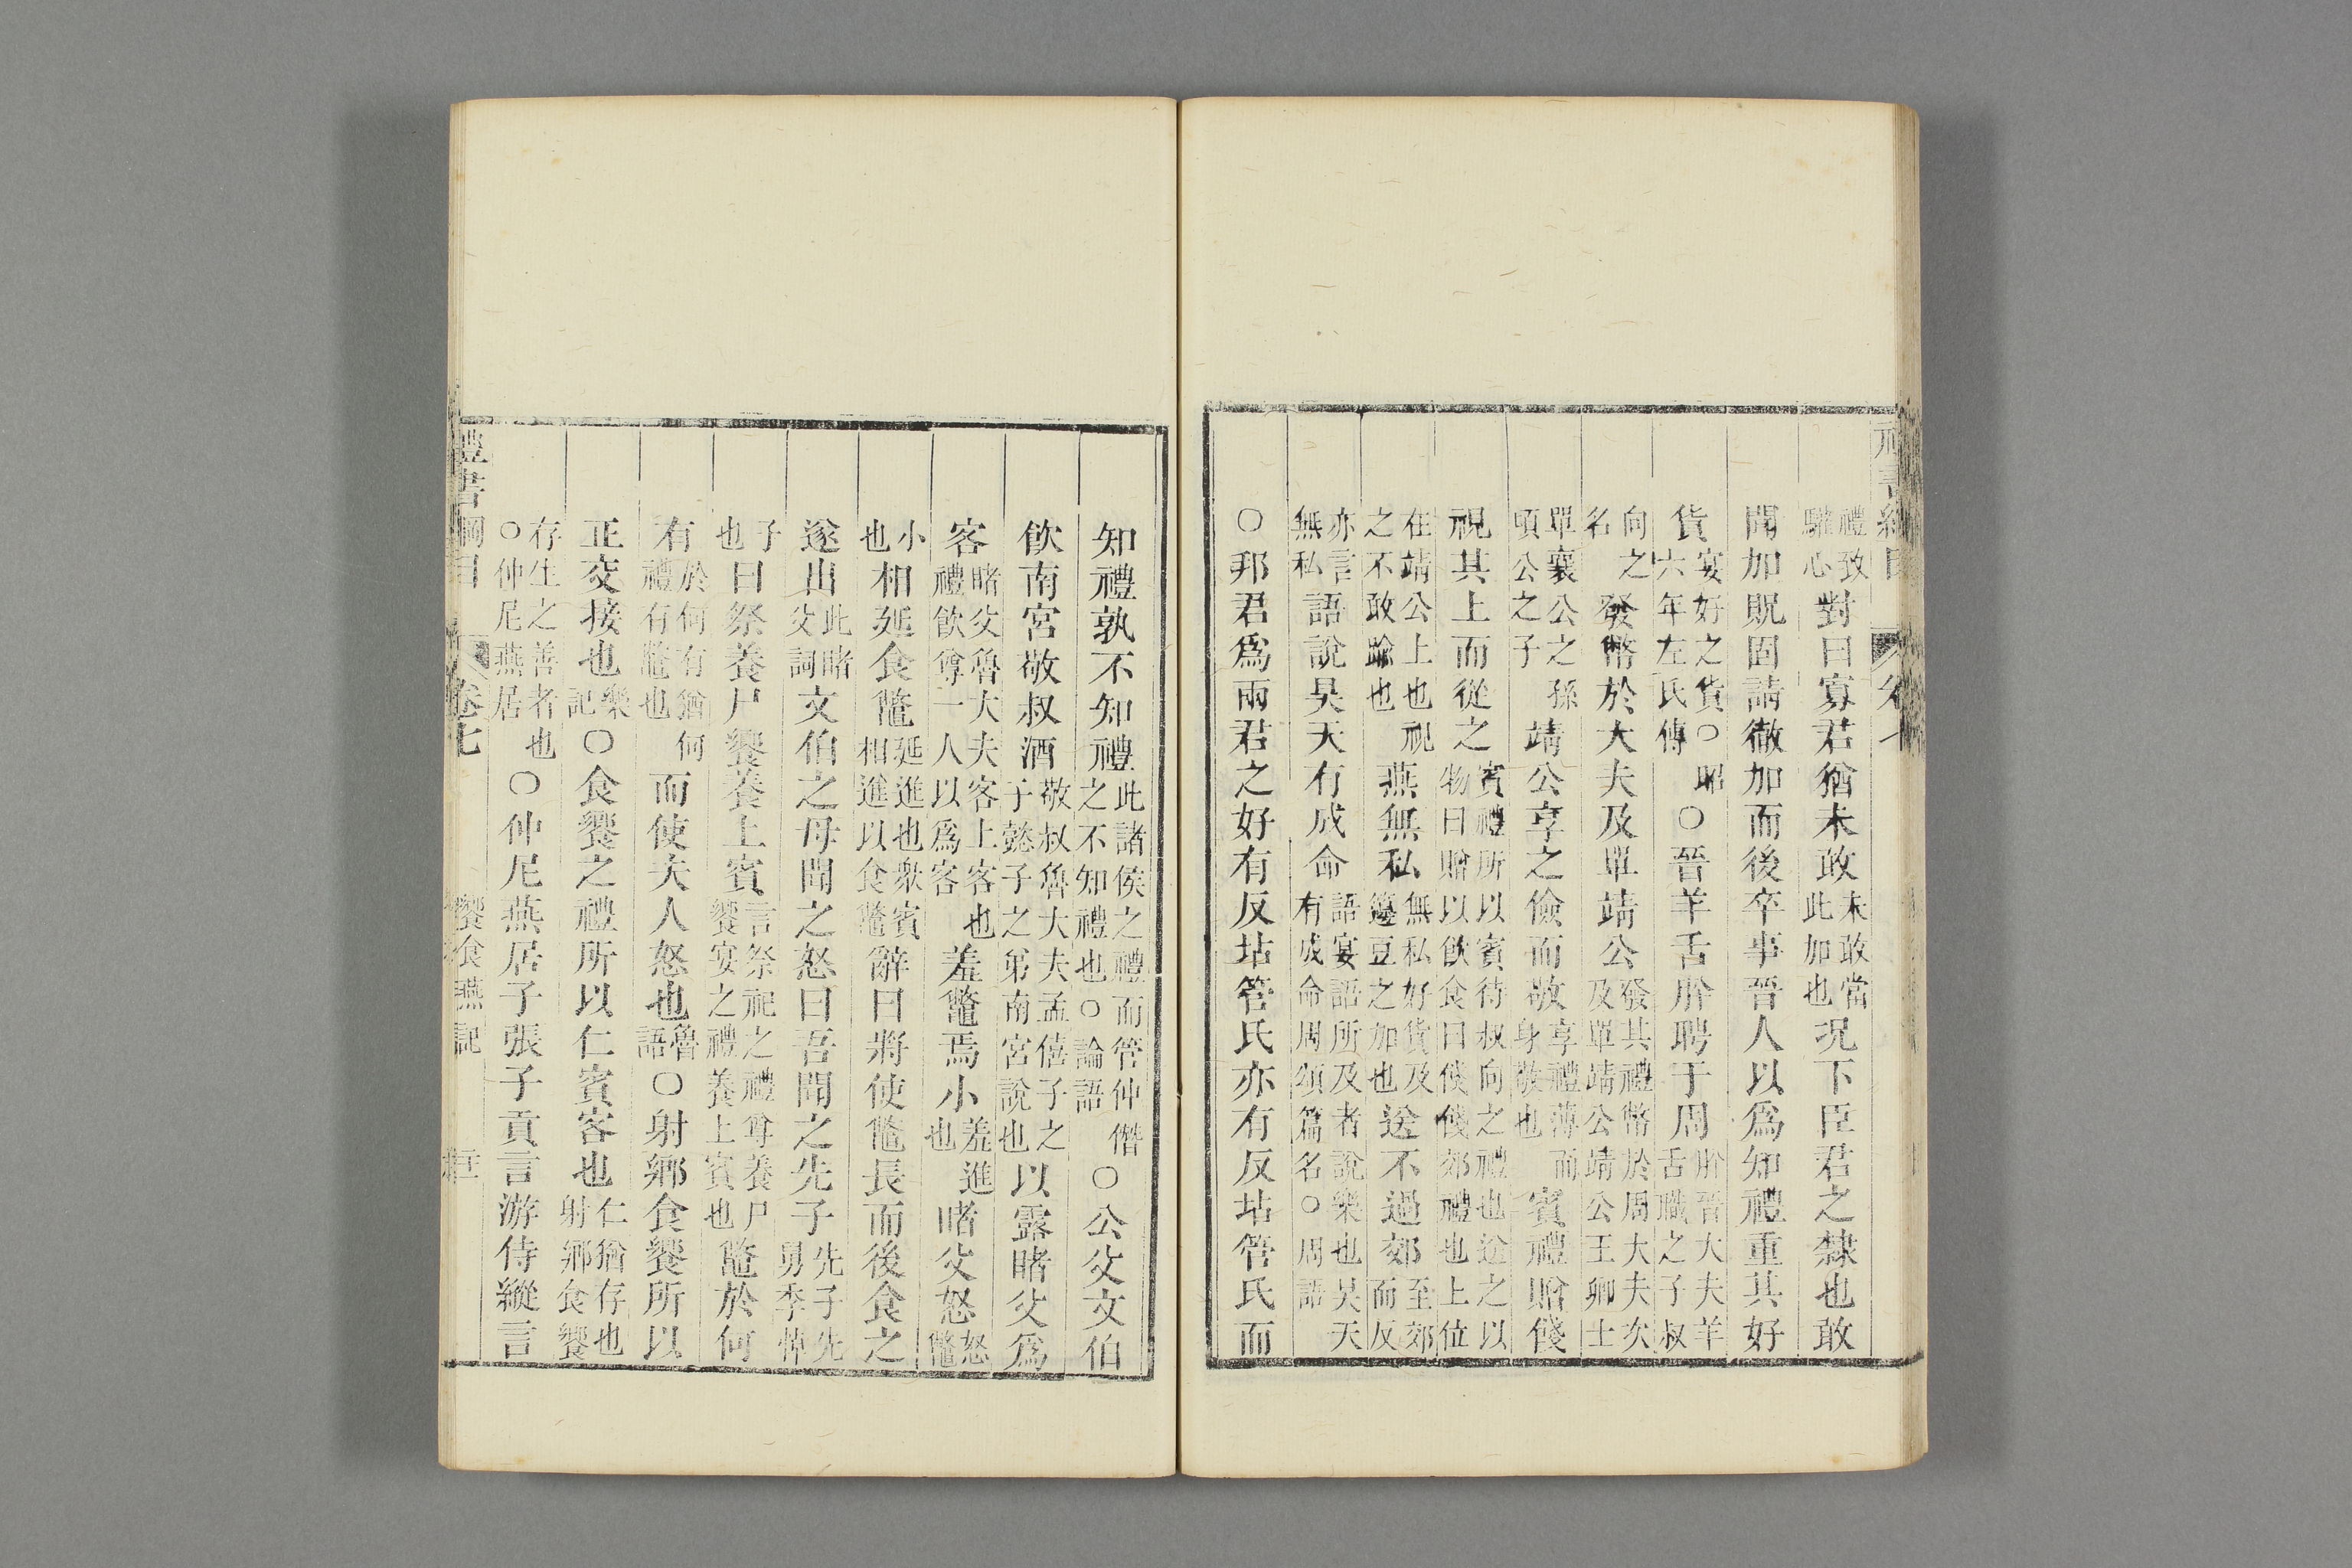 禮書綱目 卷七
禮致驩心對曰寡君猶未敢未敢當此加也況下臣君之隸也敢
聞加貺固請徹加而後卒事晉人以爲知禮重其好
貨宴好之貨○昭六年左氏傳○晉羊舌肸聘于周肸晉大夫羊舌職之子叔
向之名發幣於大夫及單靖公發其禮幣於周大夫次及單靖公靖公王卿士
單襄公之孫頃公之子靖公享之儉而敬享禮薄而身敬也賓禮贈餞
視其上而從之賓禮所以賓待叔向之禮也送之以物曰贈以飲食曰餞餞郊禮也上位
在靖公上也視之不敢踰也燕無私無私好貨及籩豆之加也送不過郊至郊而反
亦言無私語說昊天有成命語宴語所及者說樂也昊天有成命周頌篇名○周語
○邦君爲兩君之好有反坫管氏亦有反坫管氏而
知禮孰不知禮此諸侯之禮而管仲僭之不知禮也○論語○公父文伯
飲南宮敬叔酒敬叔魯大夫孟僖子之子懿子之弟南宮說也以露睹父爲
客睹父魯大夫客上客也禮飲尊一人以爲客羞鼈焉小羞進也睹父怒怒鼈
小也相延食鼈延進也衆賓相進以食鼈辭曰將使鼈長而後食之
遂出此睹父詞文伯之母聞之怒曰吾聞之先子先子先舅季悼
子也曰祭養尸饗養上賓言祭祀之禮尊養尸饗宴之禮養上賓也鼈於何
有於何有猶何禮有鼈也而使夫人怒也魯語○射鄉食饗所以
正交接也樂記○食饗之禮所以仁賓客也仁猶存也射鄉食饗
存生之善者也○仲尼燕居○仲尼燕居子張子貢言游侍縱言
禮書綱目 卷七 饗食燕記